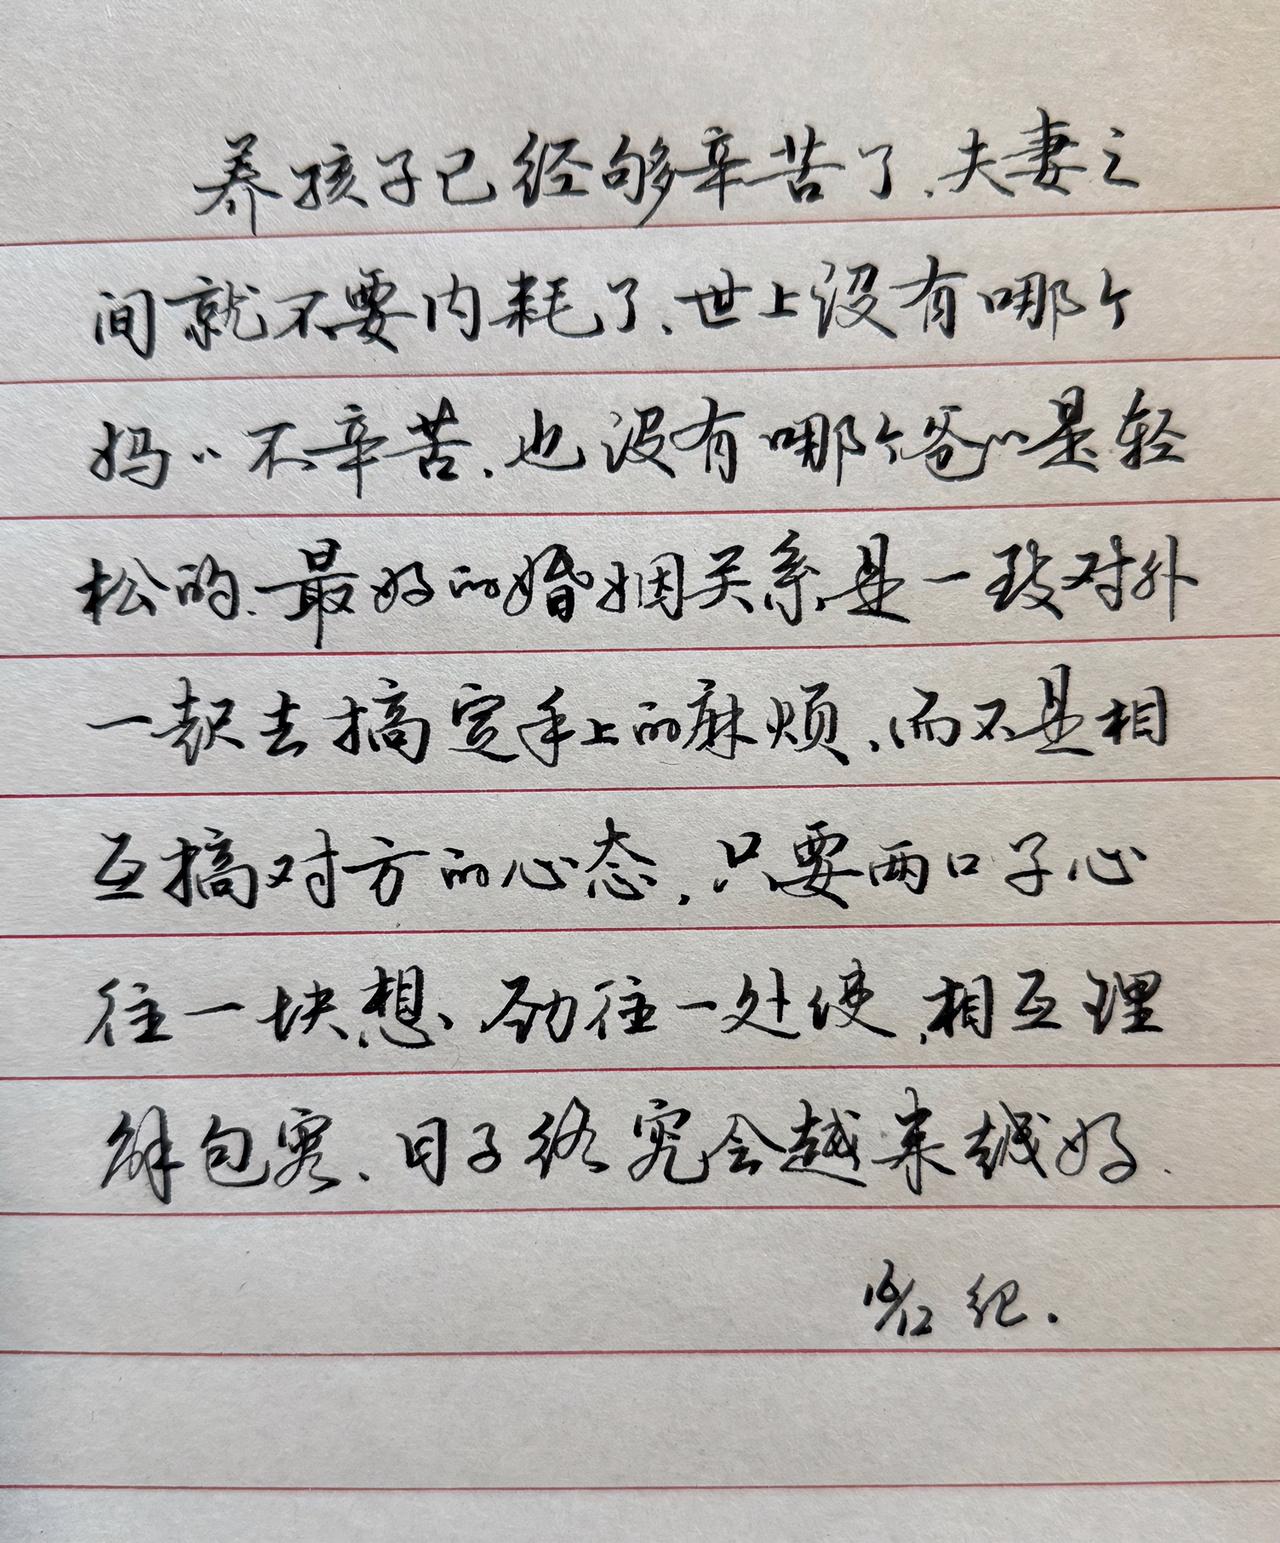 养孩子已经够辛苦了、夫妻之
间就不要内耗了、世上没有哪个
妈〃不辛苦、也没有哪个爸〃是轻
松的、最好的婚姻关系是一致对外
一起去搞定手上的麻烦、而不是相
互搞对方的心态、只要两口子心
往一块想、劲往一处使、相互理
解包容、日子终究会越来越好.
16/12 纪.